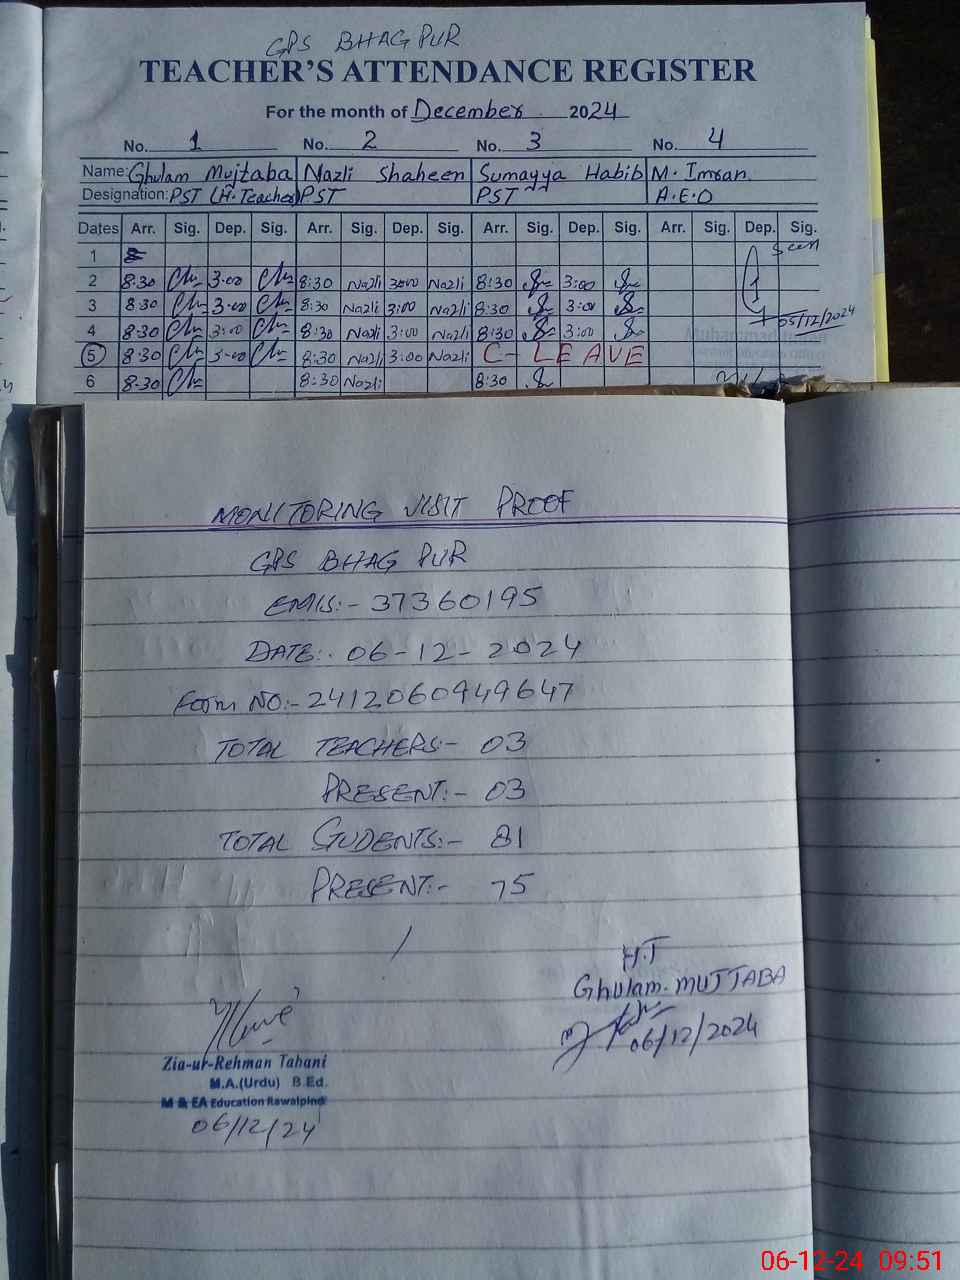 GPS BHAG PUR
TEACHER'S ATTENDANCE REGISTER
For the month of December 2024
No. 1 No. 2 No. 3 No. 4
Name: Ghulam Mujtaba Nazli Shaheen Sumayya Habib M. Imran
Designation: PST (H.Teacher) PST PST A.E.O
Dates Arr. Sig. Dep. Sig. Arr. Sig. Dep. Sig. Arr. Sig. Dep. Sig. Arr. Sig. Dep. Sig.
1 Seen
2 8:30 3:00 8:30 Nazli 3:00 Nazli 8:30 3:00
3 8:30 3:00 8:30 Nazli 3:00 Nazli 8:30 3:00
05/12/2024
4 8:30 3:00 8:30 Nazli 3:00 Nazli 8:30 3:00
5 8:30 3:00 8:30 Nazli 3:00 Nazli C- LEAVE
6 8:30 8:30 Nazli 8:30
MONITORING VISIT PROOF
GPS BHAG PUR
EMIS:- 37360195
DATE:- 06-12-2024
Form NO:- 2412060949647
TOTAL TEACHERS:- 03
PRESENT:- 03
TOTAL STUDENTS:- 81
PRESENT:- 75
H.T
Ghulam MUJTABA
06/12/2024
Zia-ur-Rehman Tahani
M.A.(Urdu) B.Ed.
M & EA Education Rawalpindi
06/12/24
06-12-24 09:51